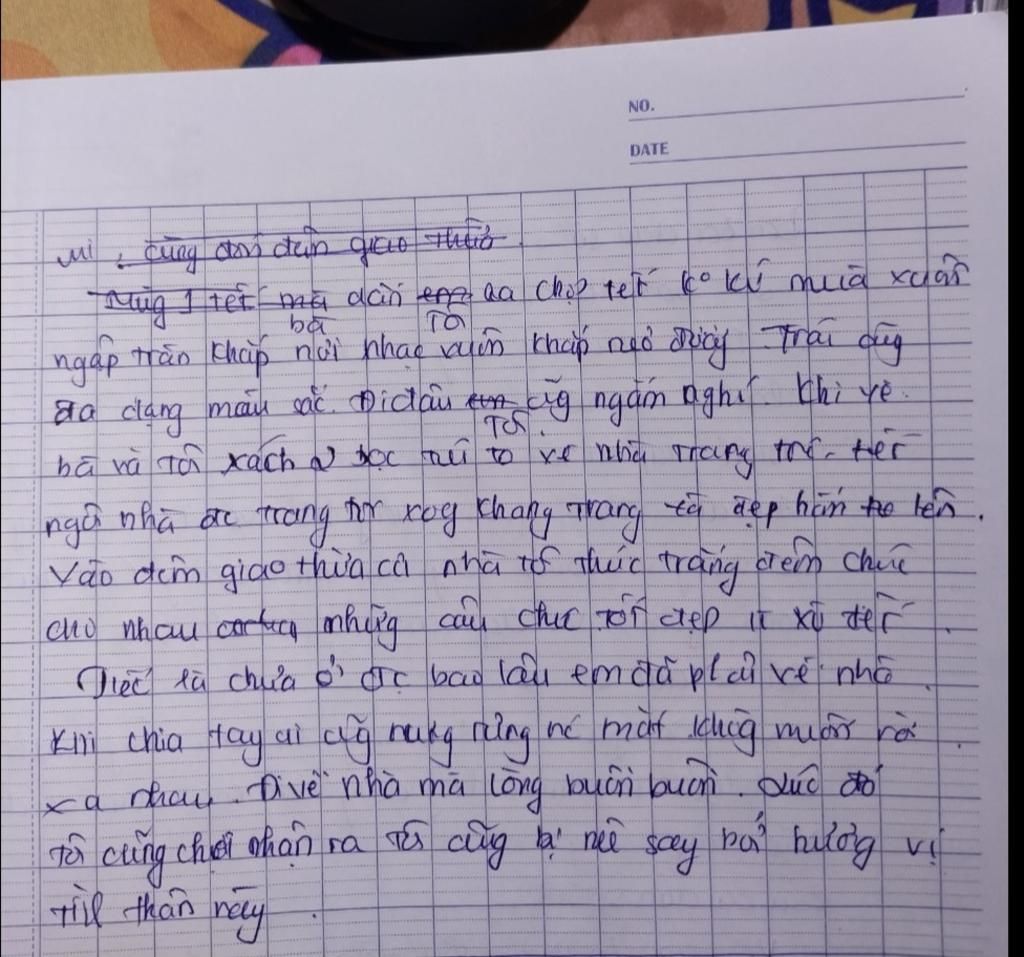 NO.
DATE
mì, cùng đón đêm giao thừa
Mùg 1 tết mà dẫn em ra chợ tết ko kí mùa xuân
bà Tôi
ngập tràn khắp nơi nhạc xuân khắp ngỏ đườg Trái cây
đa dạng màu sắc. Đi đâu em cũg ngắm nghí. Khi về
Tôi
bà và Tôi xách to về nhà trang trí tết
ngôi nhà đc trang trí xog khang trang tươi đẹp hẳn lên.
Vào đêm giao thừa cả nhà tôi thức trắng đêm chúc
cho nhau nhữg câu chúc tốt đẹp lì xì tết
Tiếc là chưa ở đc bao lâu em đã phải về nhà.
Khi chia tay ai cũg rưng rưng nc mắt khôg muốn rời
xa nhau. Đi về nhà mà lòng buồn buồn. Lúc đó
tôi cũng chợt nhận ra Tôi cũg bị mê say bởi hương vị
thân này.